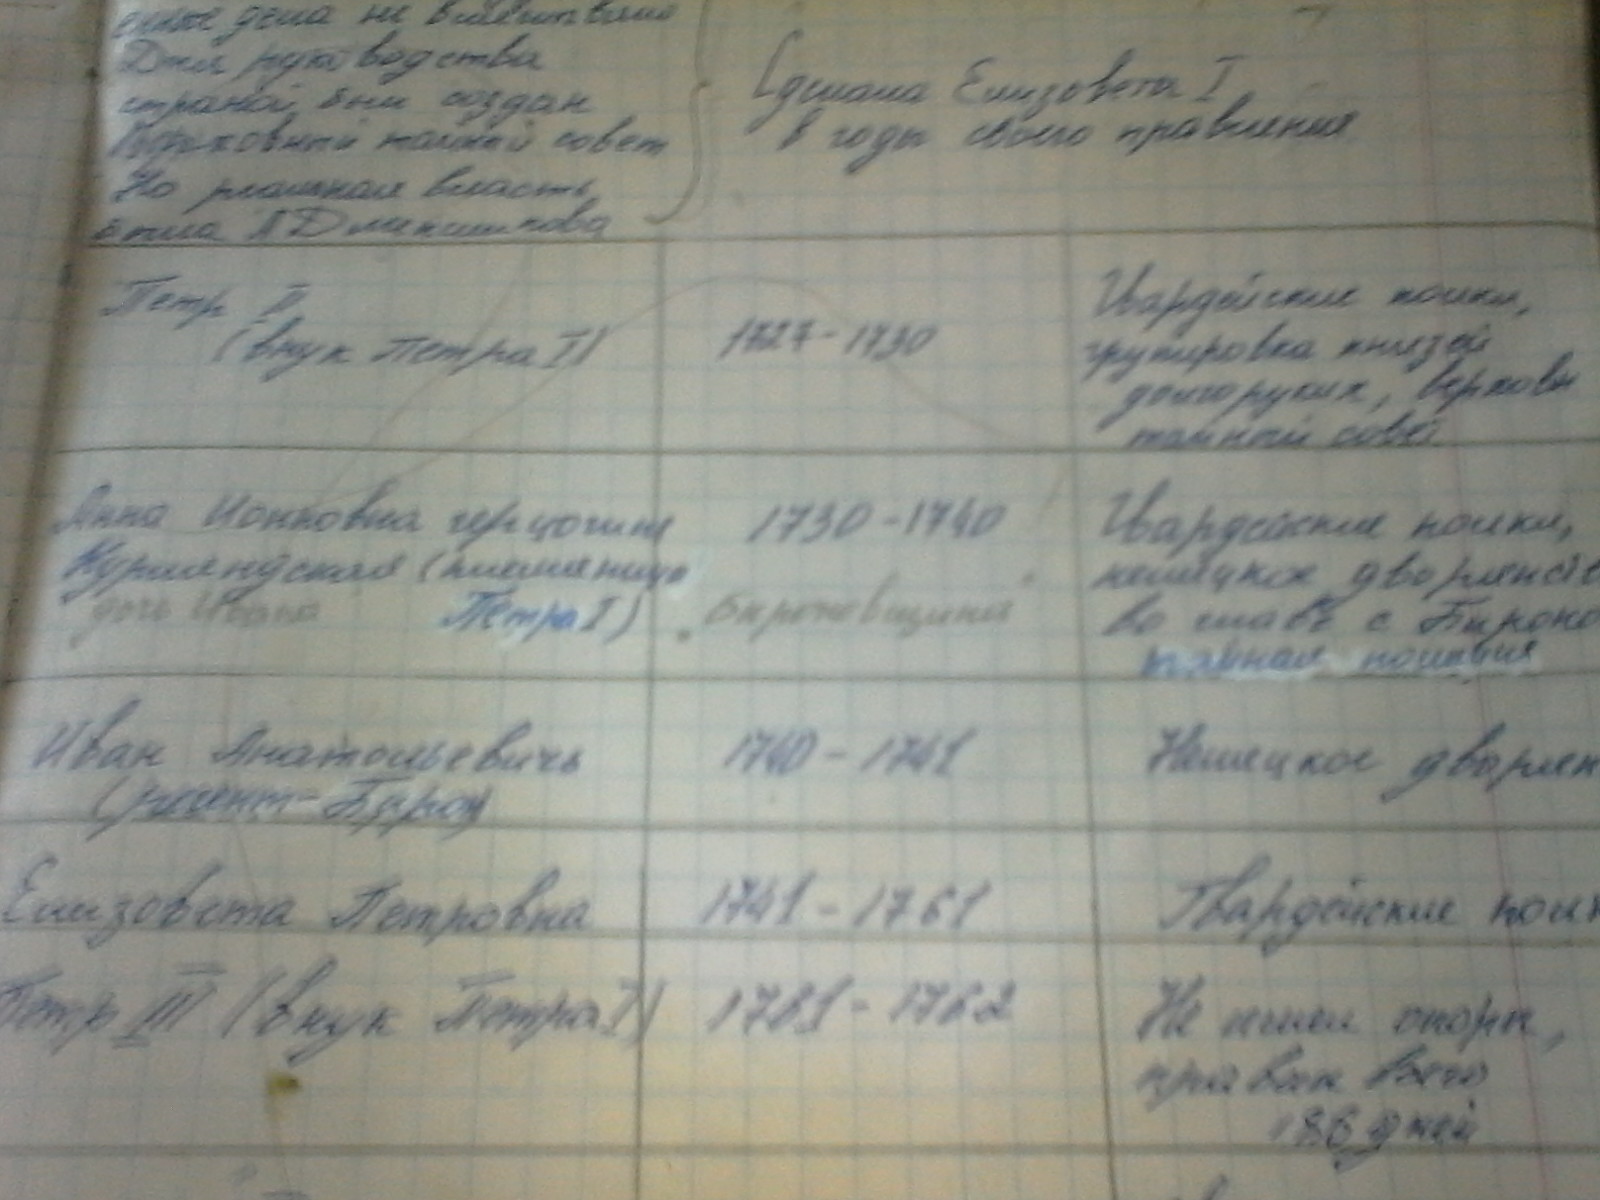 дела не
Для руководства
страной был создан
Верховный тайный совет
Но реальная власть
была АД меньшикова
Сделала Елизовета I
в годы своего правления
Петр II
(внук Петра I)
1727-1730
Гвардейские полки,
групировка князей
долгоруких, верховн
тайный совет
Анна Ионовна герцогиня
Курляндская (племянница
дочь Ивана Петра I)
1730-1740
Бироновщина
Гвардейские полки,
немецкое дворянств
во главе с Бироно
тайная полиция
Иван Анатольевичь
(регент-Бирон)
1740-1741
Немецкое дворян
Елизовета Петровна
1741-1761
Гвардейские полк
Петр III (внук Петра I)
1761-1762
Не имел опоры,
правил всего
186 дней